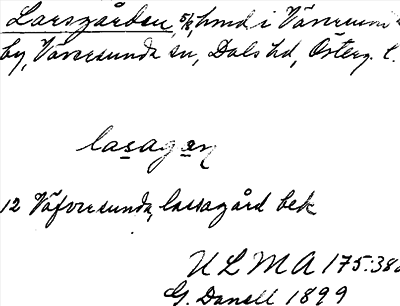 Larsgården, 5/8 hmd i Väversunda
by, Väversunda sn, Dals hd, Österg. l.
lasagan
12 Väfversunda, lassagård bek
ULMA 175:38
G. Danell 1899